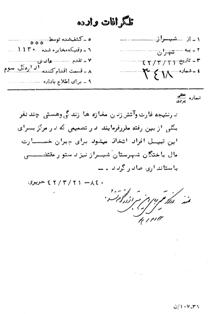 تلگرافات وارده
۱ - از شیراز
۲ - به تهران
۳ - تاریخ ۴۲/۳/۲۱
۴ - شماره ۳۴۱۸
۵ - کشف‌شده توسط ۵۵۵
۶ - دقیقه مخابره شده ۱۱۳۰
۷ - تقدم عادی
۸ - قسمت اقدام کننده اداره کل سوم
۹ - برای اطلاع باداره
شماره
درنتیجه غارت و آتش زدن مغازه ها زندگی وهستی چند نفر
بکلی از بین رفته مقررفرمایند در تصمیمی که در مرکز برای
این قبیل افراد اتخاذ میشود برای جبران خسارت
مال باختگان شهرستان شیراز نیز دستور مقتضی
باستانداری صادر گردد .-
۸۴۰ - ۴۲/۳/۲۱ حریری
۳۱-۱۰۷/ن